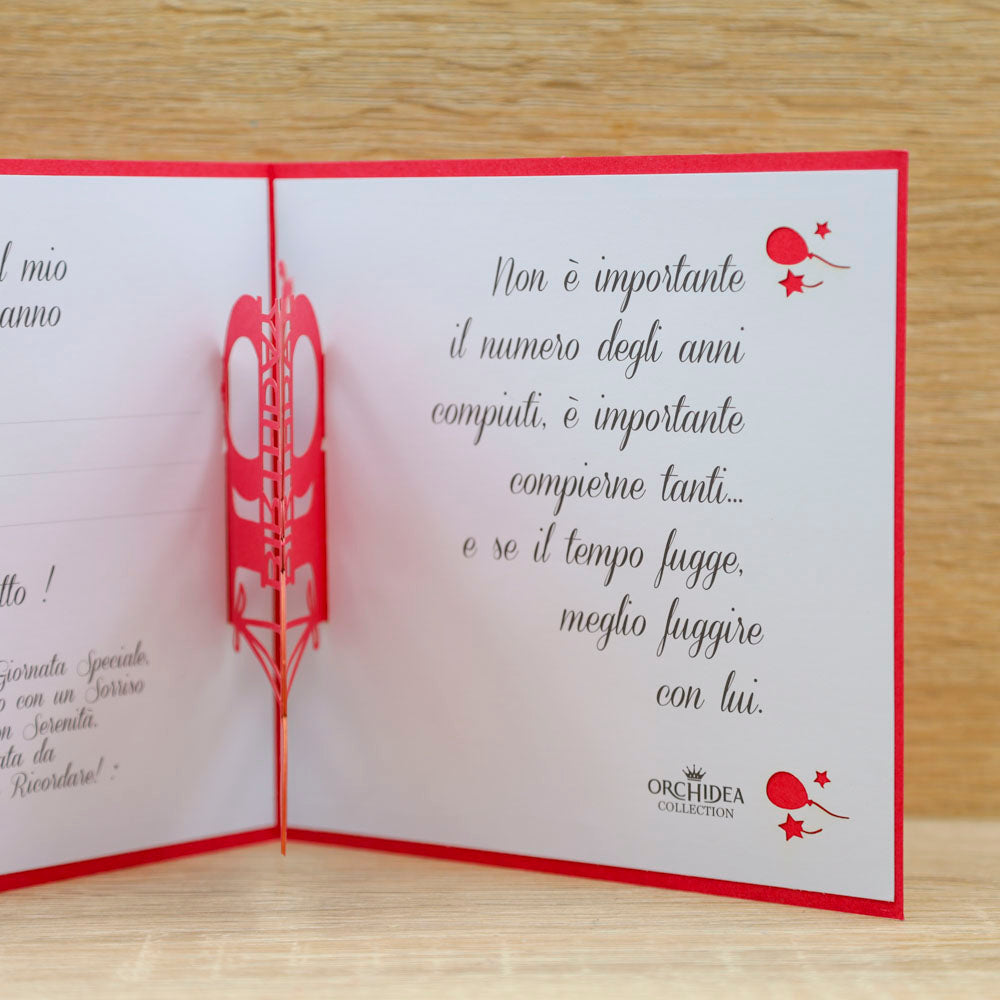 l mio
anno
tto !
Giornata Speciale,
o con un Sorriso
on Serenità.
ata da
Ricordare! "
Non è importante
il numero degli anni
compiuti, è importante
compierne tanti...
e se il tempo fugge,
meglio fuggire
con lui.
ORCHIDEA
COLLECTION